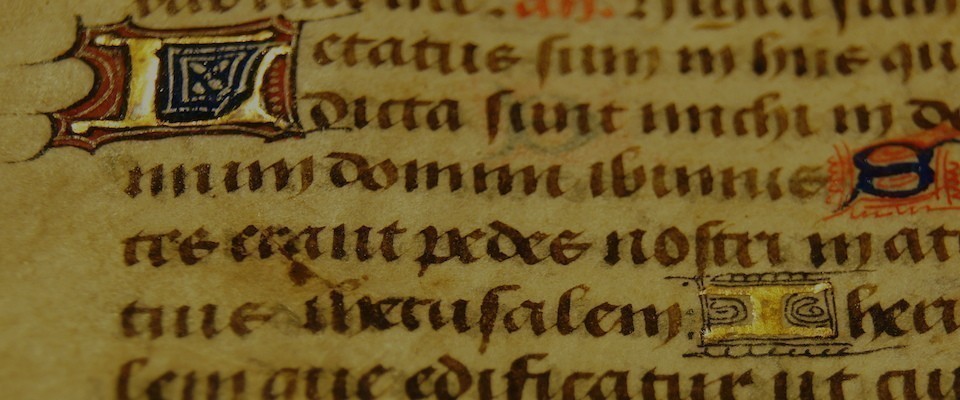 Letatus sum in hiis
dicta sunt michi in
mum domini ibimus S
tes erant pedes nostri in
tuis iherusalem I
lem que edificatur ut